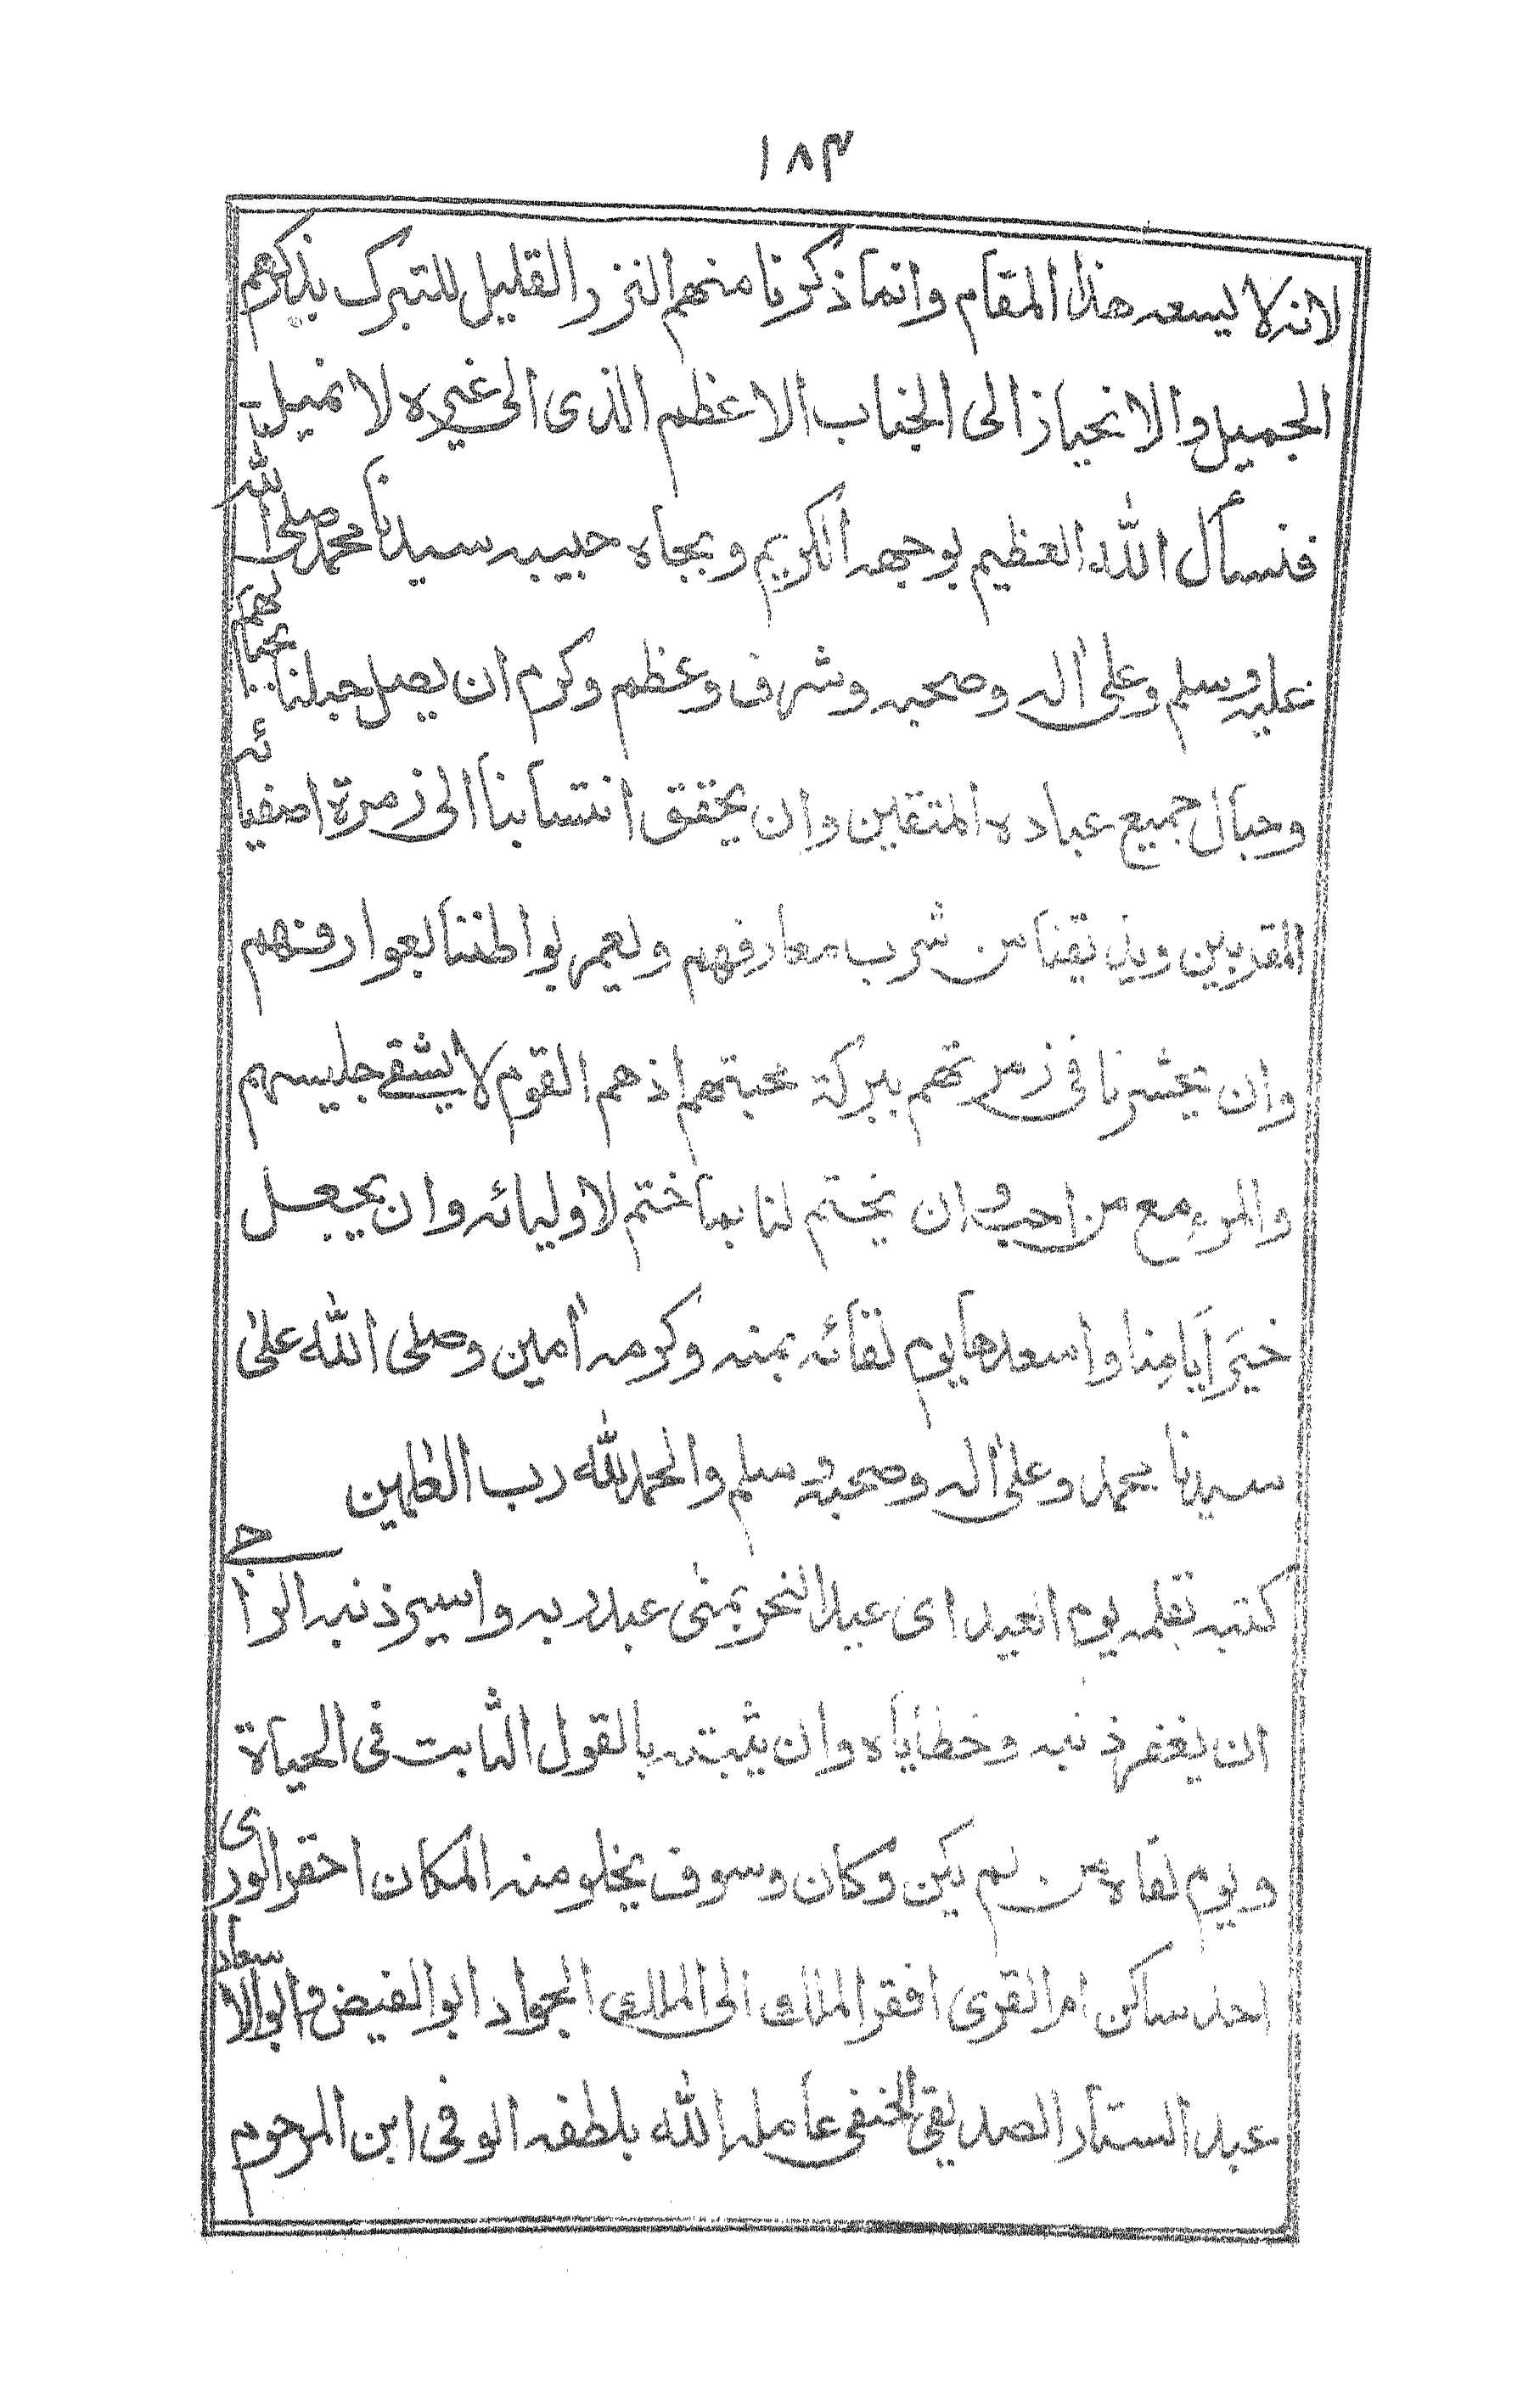 ١٨٣
لانه لا يسعه هذا المقام وانما ذكرنا منهم النزر القليل للتبرك بذكرهم
الجميل والانحياز الى الجناب الاعظم الذى الى غيره لا نميل
فنسأل الله العظيم بوجهه الكريم وبجاه حبيبه سيدنا محمد صلى الله
عليه وسلم وعلى اله وصحبه وشرف وعظم وكرم ان يصل حبلنا بحبالهم
وحبال جميع عباده المتقين وان يحقق انتسابنا الى زمرة اصفيائه
المقربين ويذيقنا من شرب معارفهم ويعمر بواطننا بعوارفهم
وان يحشرنا فى زمرتهم ببركة محبتهم اذ هم القوم لا يشقى جليسهم
والمرء مع من احب وان يختم لنا بما ختم لاوليائه وان يجعل
خيَر اَيامِنا واسعدها يوم لقائه بمنه وكرمه اٰمين وصلى الله علىٰ
سيدنا محمد وعلىٰ اٰله وصحبه وسلم والحمد لله رب العٰلمين
كتبه بقلمه يوم العيد اى عيد النحر بمنى عبد ربه واسير ذنبه الراجى
ان يغفر ذنبه وخطاياه وان يثبته بالقول الثابت فى الحياة
ويوم لقاه من لم يكن وكان وسوف يخلو منه المكان احقر الورى
احد ساكن ام القرى افقر الممالك الى المالك الجواد ابو الفيض وابو الاسعاد
عبد الستار الصديقى الحنفى عامله الله بلطفه الوفى ابن المرحوم